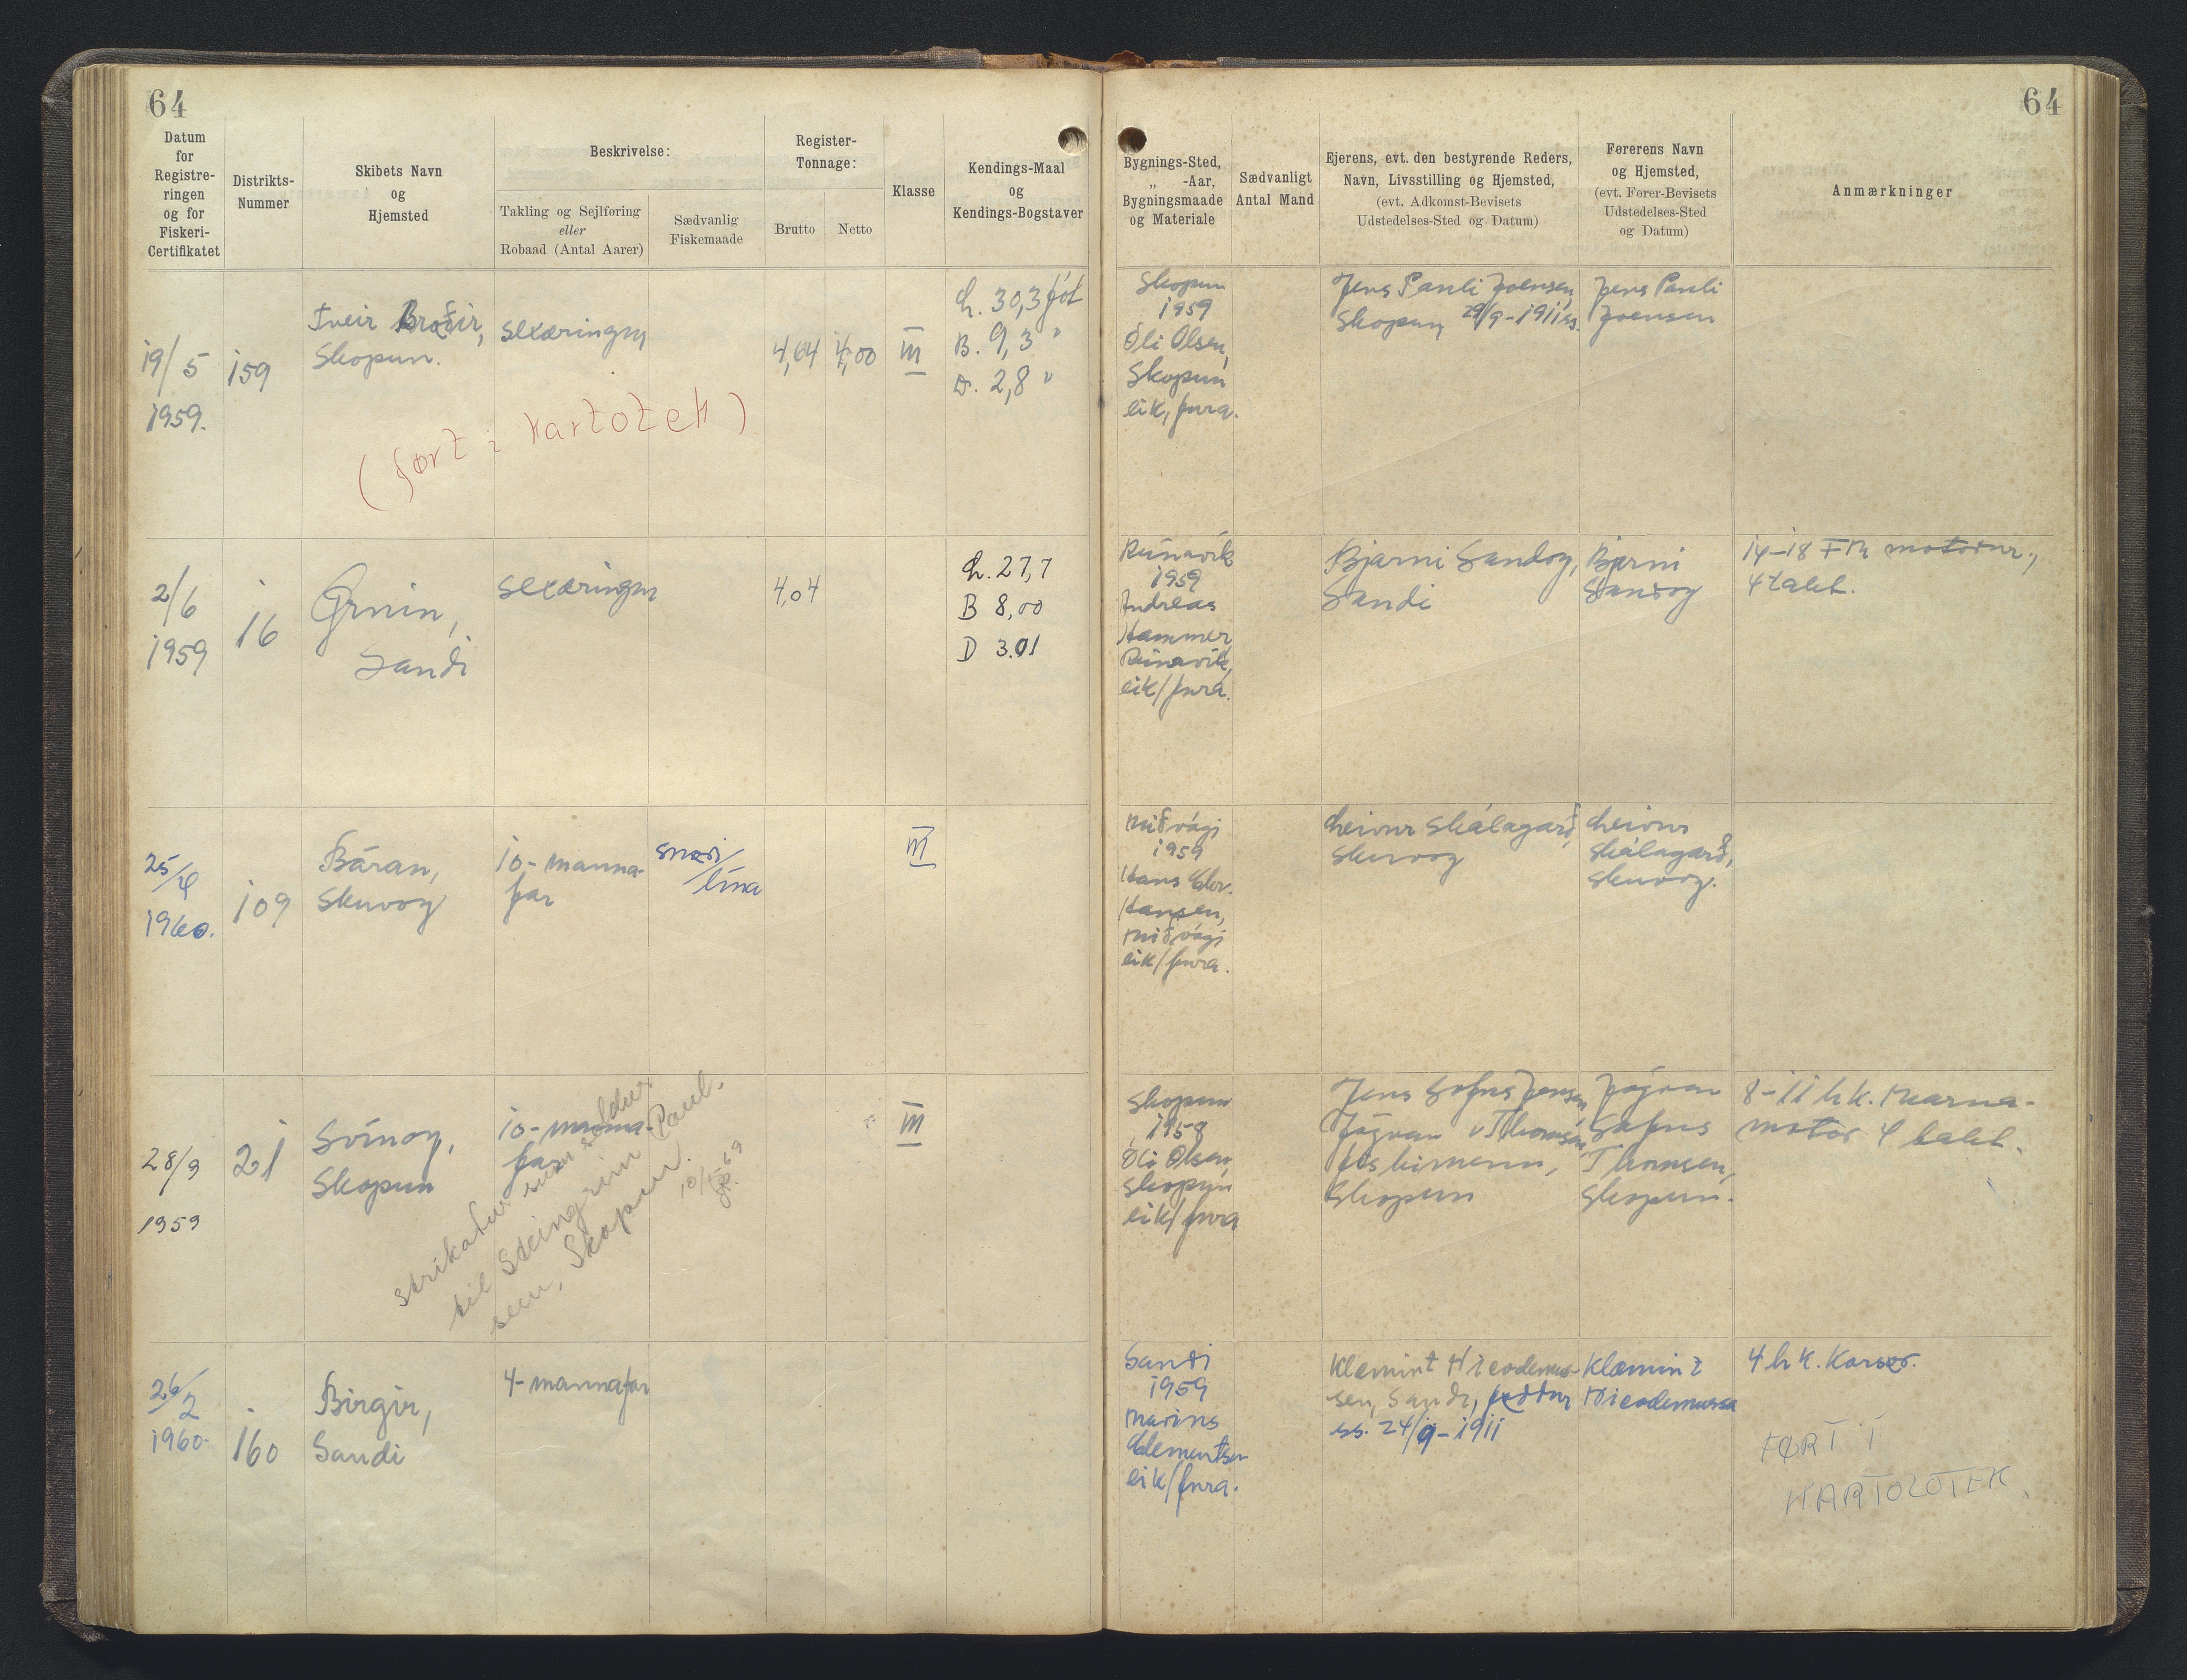 64
64
Datum
for
Registre-
ringen
og for
Fiskeri-
Certifikatet
Distrikts-
Nummer
Skibets Navn
og
Hjemsted
Beskrivelse:
Takling og Sejlføring
eller
Robaad (Antal Aarer)
Sædvanlig
Fiskemaade
Register-
Tonnage:
Brutto
Netto
Klasse
Kendings-Maal
og
Kendings-Bogstaver
Bygnings-Sted,
„ -Aar,
Bygningsmaade
og Materiale
Sædvanligt
Antal Mand
Ejerens, evt. den bestyrende Reders,
Navn, Livsstilling og Hjemsted,
(evt. Adkomst-Bevisets
Udstedelses-Sted og Datum)
Førerens Navn
og Hjemsted,
(evt. Fører-Bevisets
Udstedelses-Sted
og Datum)
Anmærkninger
19/5
1959.
159
Tveir Brøðir,
Skopun.
sexæringur
4,64
4,00
III
L. 30,3 fót
B. 9,3 "
D. 2,8 "
Skopun
1959
Óli Olsen,
Skopun
eik, fura.
Jens Pauli Joensen,
Skopun 29/9-1911 ss.
Jens Pauli
Joensen
(ført i kartotek)
2/6
1959
16
Grunin,
Sandi
sexæringur
4,04
L. 27,7
B 8,00
D 3.01
Runavík
1959
Andreas
Hammer,
Runavík,
eik/fura.
Bjarni Sandoy,
Sandi
Bjarni
Sandoy
14-18 FM motorur,
4 takt.
25/4
1960.
109
Báran,
Skuvoy
10-manna-
far
snøri/
lína
III
Miðvági
1959
Hans
Hansen,
Miðvági
eik/fura.
Leivur Skálagarð,
Skuvoy
Leivur
Skálagarð,
Skuvoy.
28/9
1959
21
Svínoy,
Skopun
10-manna-
far
III
Skopun
1959
Óli Olsen,
Skopun
eik/fura
Jens Sofus Jensen,
Jógvan Thomsen,
fiskimenn,
Skopun
Jógvan
Sofus
Thomsen,
Skopun.
8-11 hk. Marna-
motor 4 takt.
strikaður sum seldur
til Steingrim Paul-
sen, Skopun.
26/2
1960.
160
Birgir,
Sandi
4-mannafar
Sandi
1959
Marius
Clementsen
eik/fura.
Klæmint Nicodemus-
sen, Sandi, føddur
ss. 24/9-1911
Klæmint
Nicodemussen
4 hk. Kørsør.
FØRT Í
KARTOTOTEK.